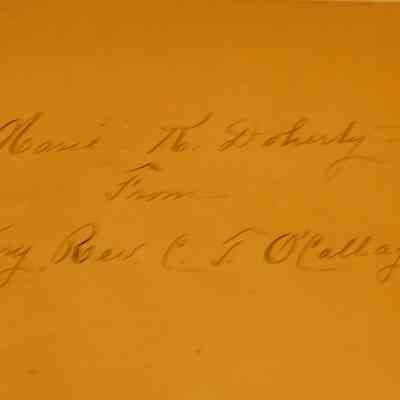 Marie K. Doherty
From
ry Rev. C. T. O'Callag